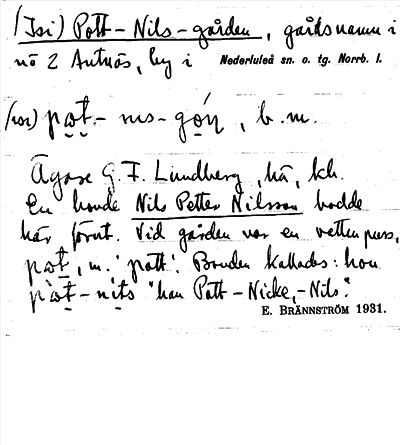 (Isi) Pott-Nils-gården, gårdsnamn i
nö 2 Antnäs, by i Nederluleå sn. o. tg. Norrb. l.
pɷt- nɩs- gǫ́ɳ, b.m.
Ägare G. F. Lindberg, hä, kh.
En bonde Nils Petter Nilsson bodde
här förut. Vid gården var en vattenpuss,
pɷt, m. "pott". Bonden kallades: hon
pɷt-nɩts "han Pott-Nicke, -Nils".
E. BRÄNNSTRÖM 1931.